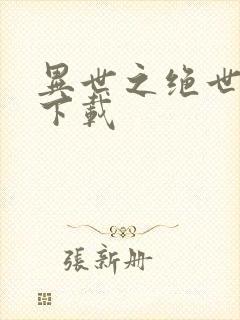 異世之绝世
下載
張新册